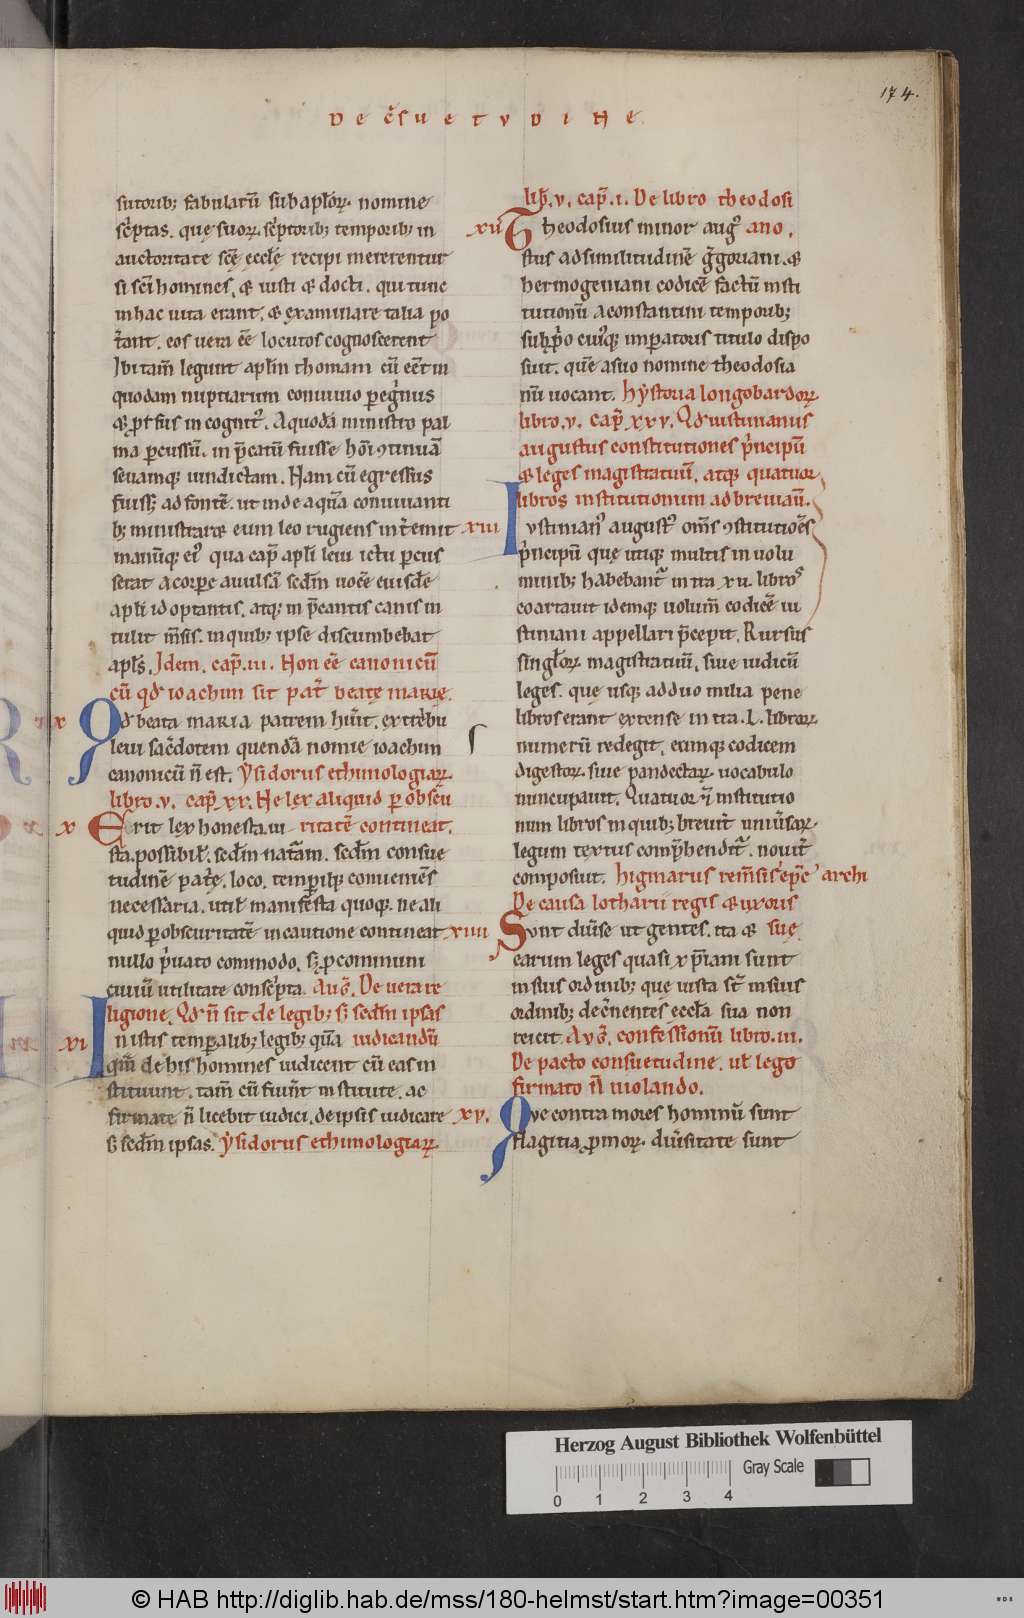 174.
DE C̄SUETUDINE
sutorib; fabularū sub aplōꝝ nomine
sc̄ptas. quę suoꝝ sc̄ptorib; temporib; in
auctoritate scę̄ eccłę recipi mererentur
si sc̄i homines, & iusti & docti. qui tunc
in hac uita erant, & examinare talia po
t̄ant. eos uera ēē locutos cognoscerent
Ibi tam̄ legunt aplm̄ thomam cū eēt in
quodam nuptiarum conuiuio peḡnus
& prorsus incognitꝰ. A quodā ministro pal
ma percussū. in p̄catū fuisse hōi ꝯtinuā
seuamq; uindictam. Nam cū egressus
fuiss; ad fontē. ut inde aquā conuiuanti
b; ministraret eum leo rugiens int̄emit
manūq; eiꝰ qua cap̄ apli leui ictu percus
serat a corpore auulsā scdm̄ uocē eiusdē
apli id optantis. atq; inp̄cantis canis in
tulit m̄sis. in quib; ipse discumbebat
apls̄. Idem. cap̄. iii. Non ēē canonicū
cū qd ioachim sit pat̄ beatę marię.
ix Qd beata maria patrem hūit. ex tribu
leui sac̄dotem quendā nomie ioachim
canonicū n̄ est. ysidorus ethimologiaꝝ
libro. v. cap̄. xx. Ne lex aliquid p obscu
x Erit lex honesta. iu- ritatē contineat.
sta. possibił. scdm̄ nat̄am. scdm̄ consue
tudinē patrię. loco. temporiq; conueniēs
necessaria. utił. manifesta quoq;. ne ali
quid p obscuritatē in cautione contineat
nullo p̄uato commodo. s; p communi
ciuiū utilitate consc̄pta. Aug̃. De uera re
ligione. Qd n̄ sit de legib; s; scdm̄ ipsas
xi In istis temporalib; legib; quā iudicandū
qm̄ de his homines iudicent cū eas in
stituunt. tam̄ cū fuint institute. ac
firmate n̄ licebit iudici. de ipsis iudicare
s; scdm̄ ipsas. ysidorus ethimologiaꝝ
lib̄. v. cap̄. i. De libro theodosi
xii Theodosius minor augꝰ ano.
stus ad similitudinē g̃goriani. &
hermogeniani codicē factū insti
tutionū a constantini temporib;
sub p̄prio cuiꝰq; impatoris titulo dispo
suit. quē a suo nomine theodosia
nū uocant. hystoria longobardoꝝ
libro. v. cap̄. xxv. Qd iustinianus
augustus constitutiones p̄ncipū
& leges magistratuū. atq; quatuor
libros institutionum ad breuiaū.
xiii Iustinianꝰ augustꝰ om̄s ꝯstitutiōēs
p̄ncipū quę utiq; multis in uolu
minib; habebant̄ intra xii. libros
coartauit idemq; uolum̄ codicē iu
stiniani appellari p̄cepit. Rursus
singłoꝝ magistratuū. siue iudicū
leges. que usq; ad duo milia pene
libros erant extense intra. L. libroꝝ
numerū redegit. eumq; codicem
digestoꝝ. siue pandectaꝝ uocabulo
nuncupauit. Quatuor &̄ institutio
num libros in quib; breuit̄ uniūsaꝝ
legum textus comp̄hendit̄. nouit̄
composuit. higmarus rem̄sis ep̄c archi
De causa lotharii regis & uxoris
xiiii Sunt diūse ut gentes. ita & suę
earum leges quasi xp̄iani sunt
in suis ordinib; que iusta st̄ in suis
ordinib; dec̄nentes eccła sua non
reicit. Aug̃. confessionū libro. iii.
De pacto consuetudine. uł lege
firmato n̄ uiolando.
xv. Que contra mores hominū sunt
flagitia p moꝝ. diūsitate sunt
Herzog August Bibliothek Wolfenbüttel
Gray Scale
0 1 2 3 4
© HAB http://diglib.hab.de/mss/180-helmst/start.htm?image=00351